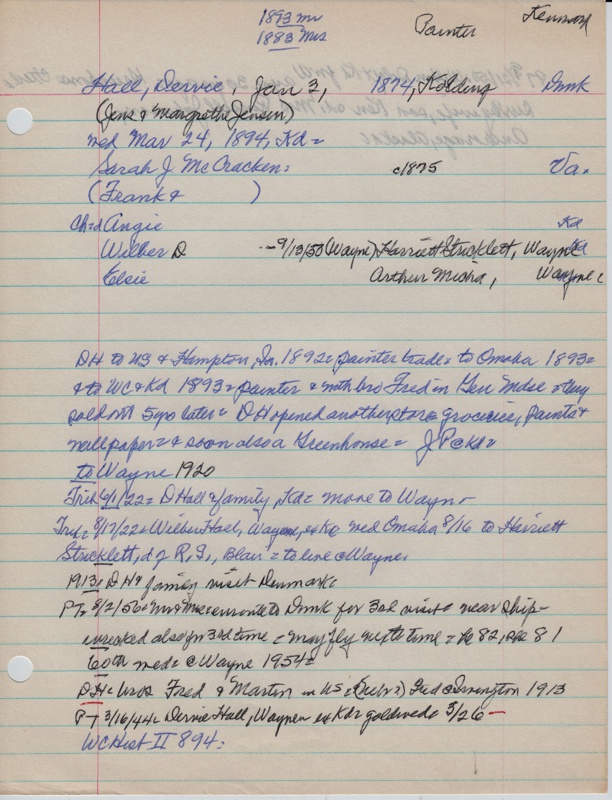 1893 mr
1883 Mrs
Painter
Kennard
Hall, Dervie, Jan 3, 1874, Kolding Dmk
(Jens & Margrethe Jensen)
wed Mar 24, 1894, Kd=
Sarah J. McCracken: c1875 Va.
(Frank & )
Ch=d Angie Kd
Wilber D --9/13/50 (Wayne), Harriett Stricklett, Wayne
Elsie Arthur Micha, Wayne
DH to US & Hampton, Ia. 1892= painter trade= to Omaha 1893=
& to WC & Kd 1893= painter & with bro Fred in Gen Mdse = they
sold out 5 yo later= DH opened another store= groceries, paints &
wallpaper= & soon also a Greenhouse= JP @ Kd=
to Wayne 1920
Trib 6/1/22= D Hall & family, Kd= move to Wayne
Trib= 8/17/22= Wilber Hall, Wayne, ex Kd wed Omaha 8/16 to Harriett
Stricklett, d of R.S., Blair= to live @ Wayne.
1913= DH & family visit Denmark=
PT= 8/2/56= Mr & Mrs enroute to Dmk for 3rd visit= near ship-
wrecked also for 3rd time = may fly next time = he 82, she 81
60th wed= @ Wayne 1954=
DH= bros Fred & Martin in US= Fred @ Irvington 1913
PT 3/16/44= Dervie Hall, Wayne= ex Kd= goldweds 3/26
WC Hist II 894: